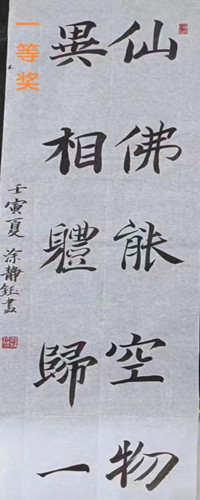 仙佛能空物
異相體歸一
壬寅夏涂静鈺書
一等奖